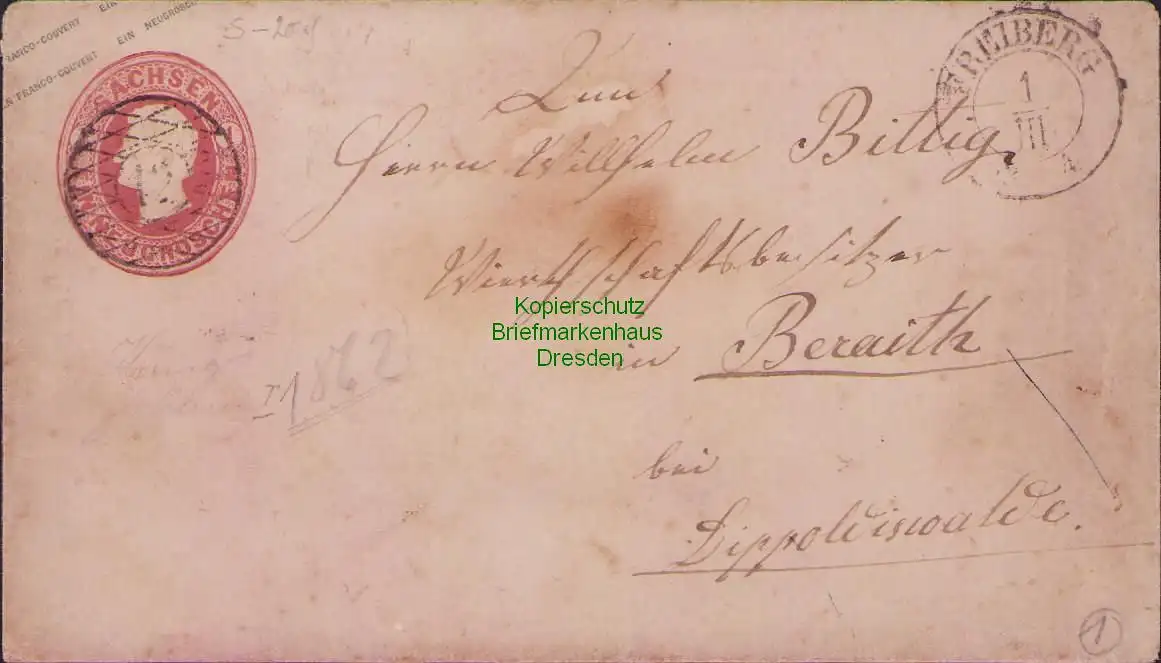 RANCO-COUVERT EIN
EIN NEUGROSC
N FRANCO-COUVERT
SACHSEN
EIN NEUGROSCHEN
FREIBERG
1
III
Herrn Wilhelm Bittig,
Wirthschaftsbesitzer
in Beraith
bei
Dippoldiswalde.
1862
Kopierschutz
Briefmarkenhaus
Dresden
1